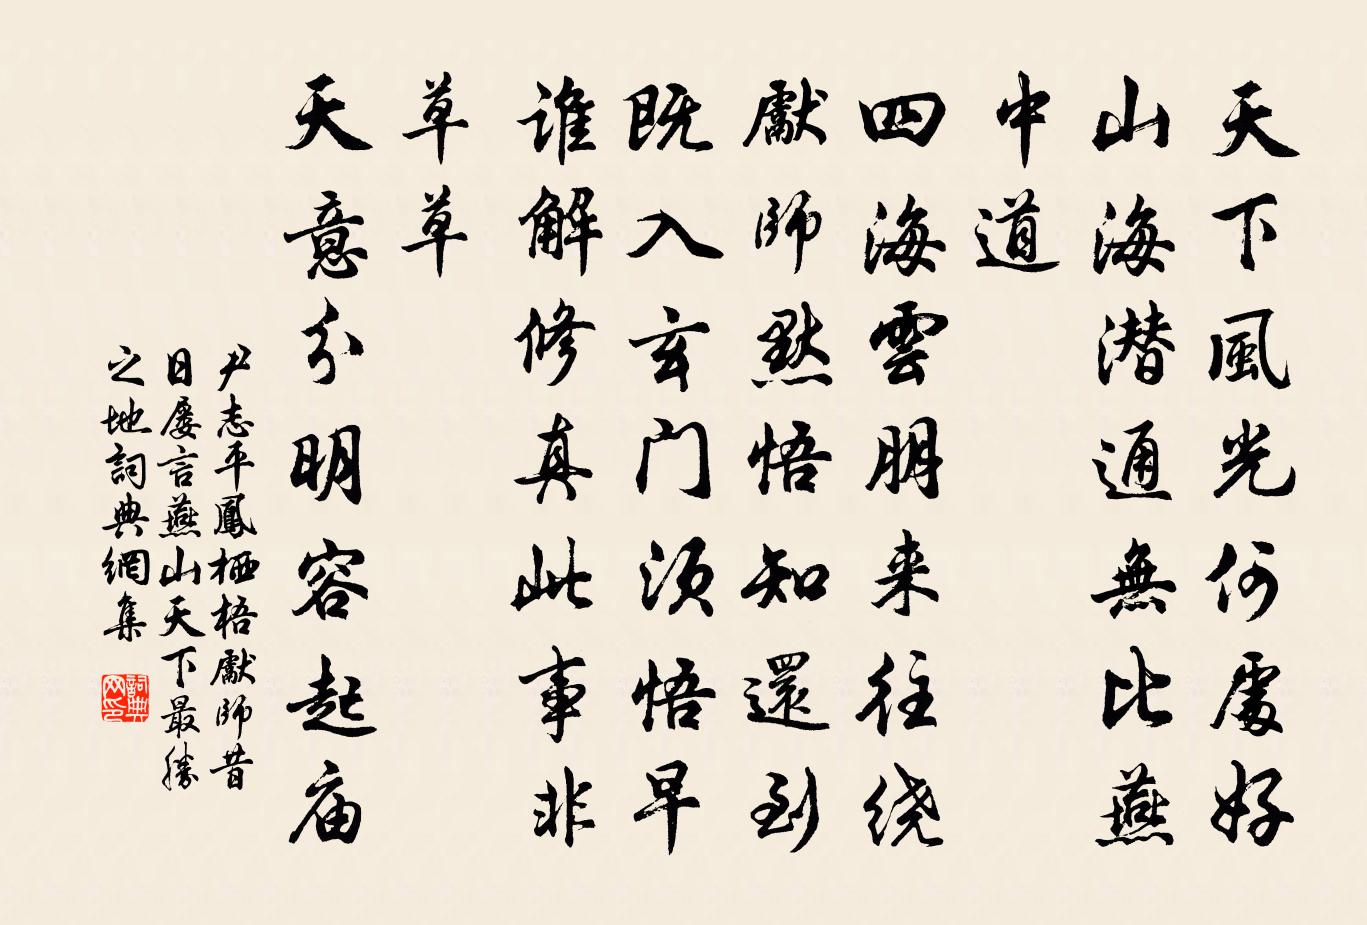 天下風光何處好
山海潜通無比燕
中道
四海雲朋来往绕
獻師默悟知還到
既入玄门须悟早
谁解修真此事非
草草
天意分明容起庙
尹志平鳳栖梧獻師昔
日屡言燕山天下最勝
之地詞典網集
詞典网印